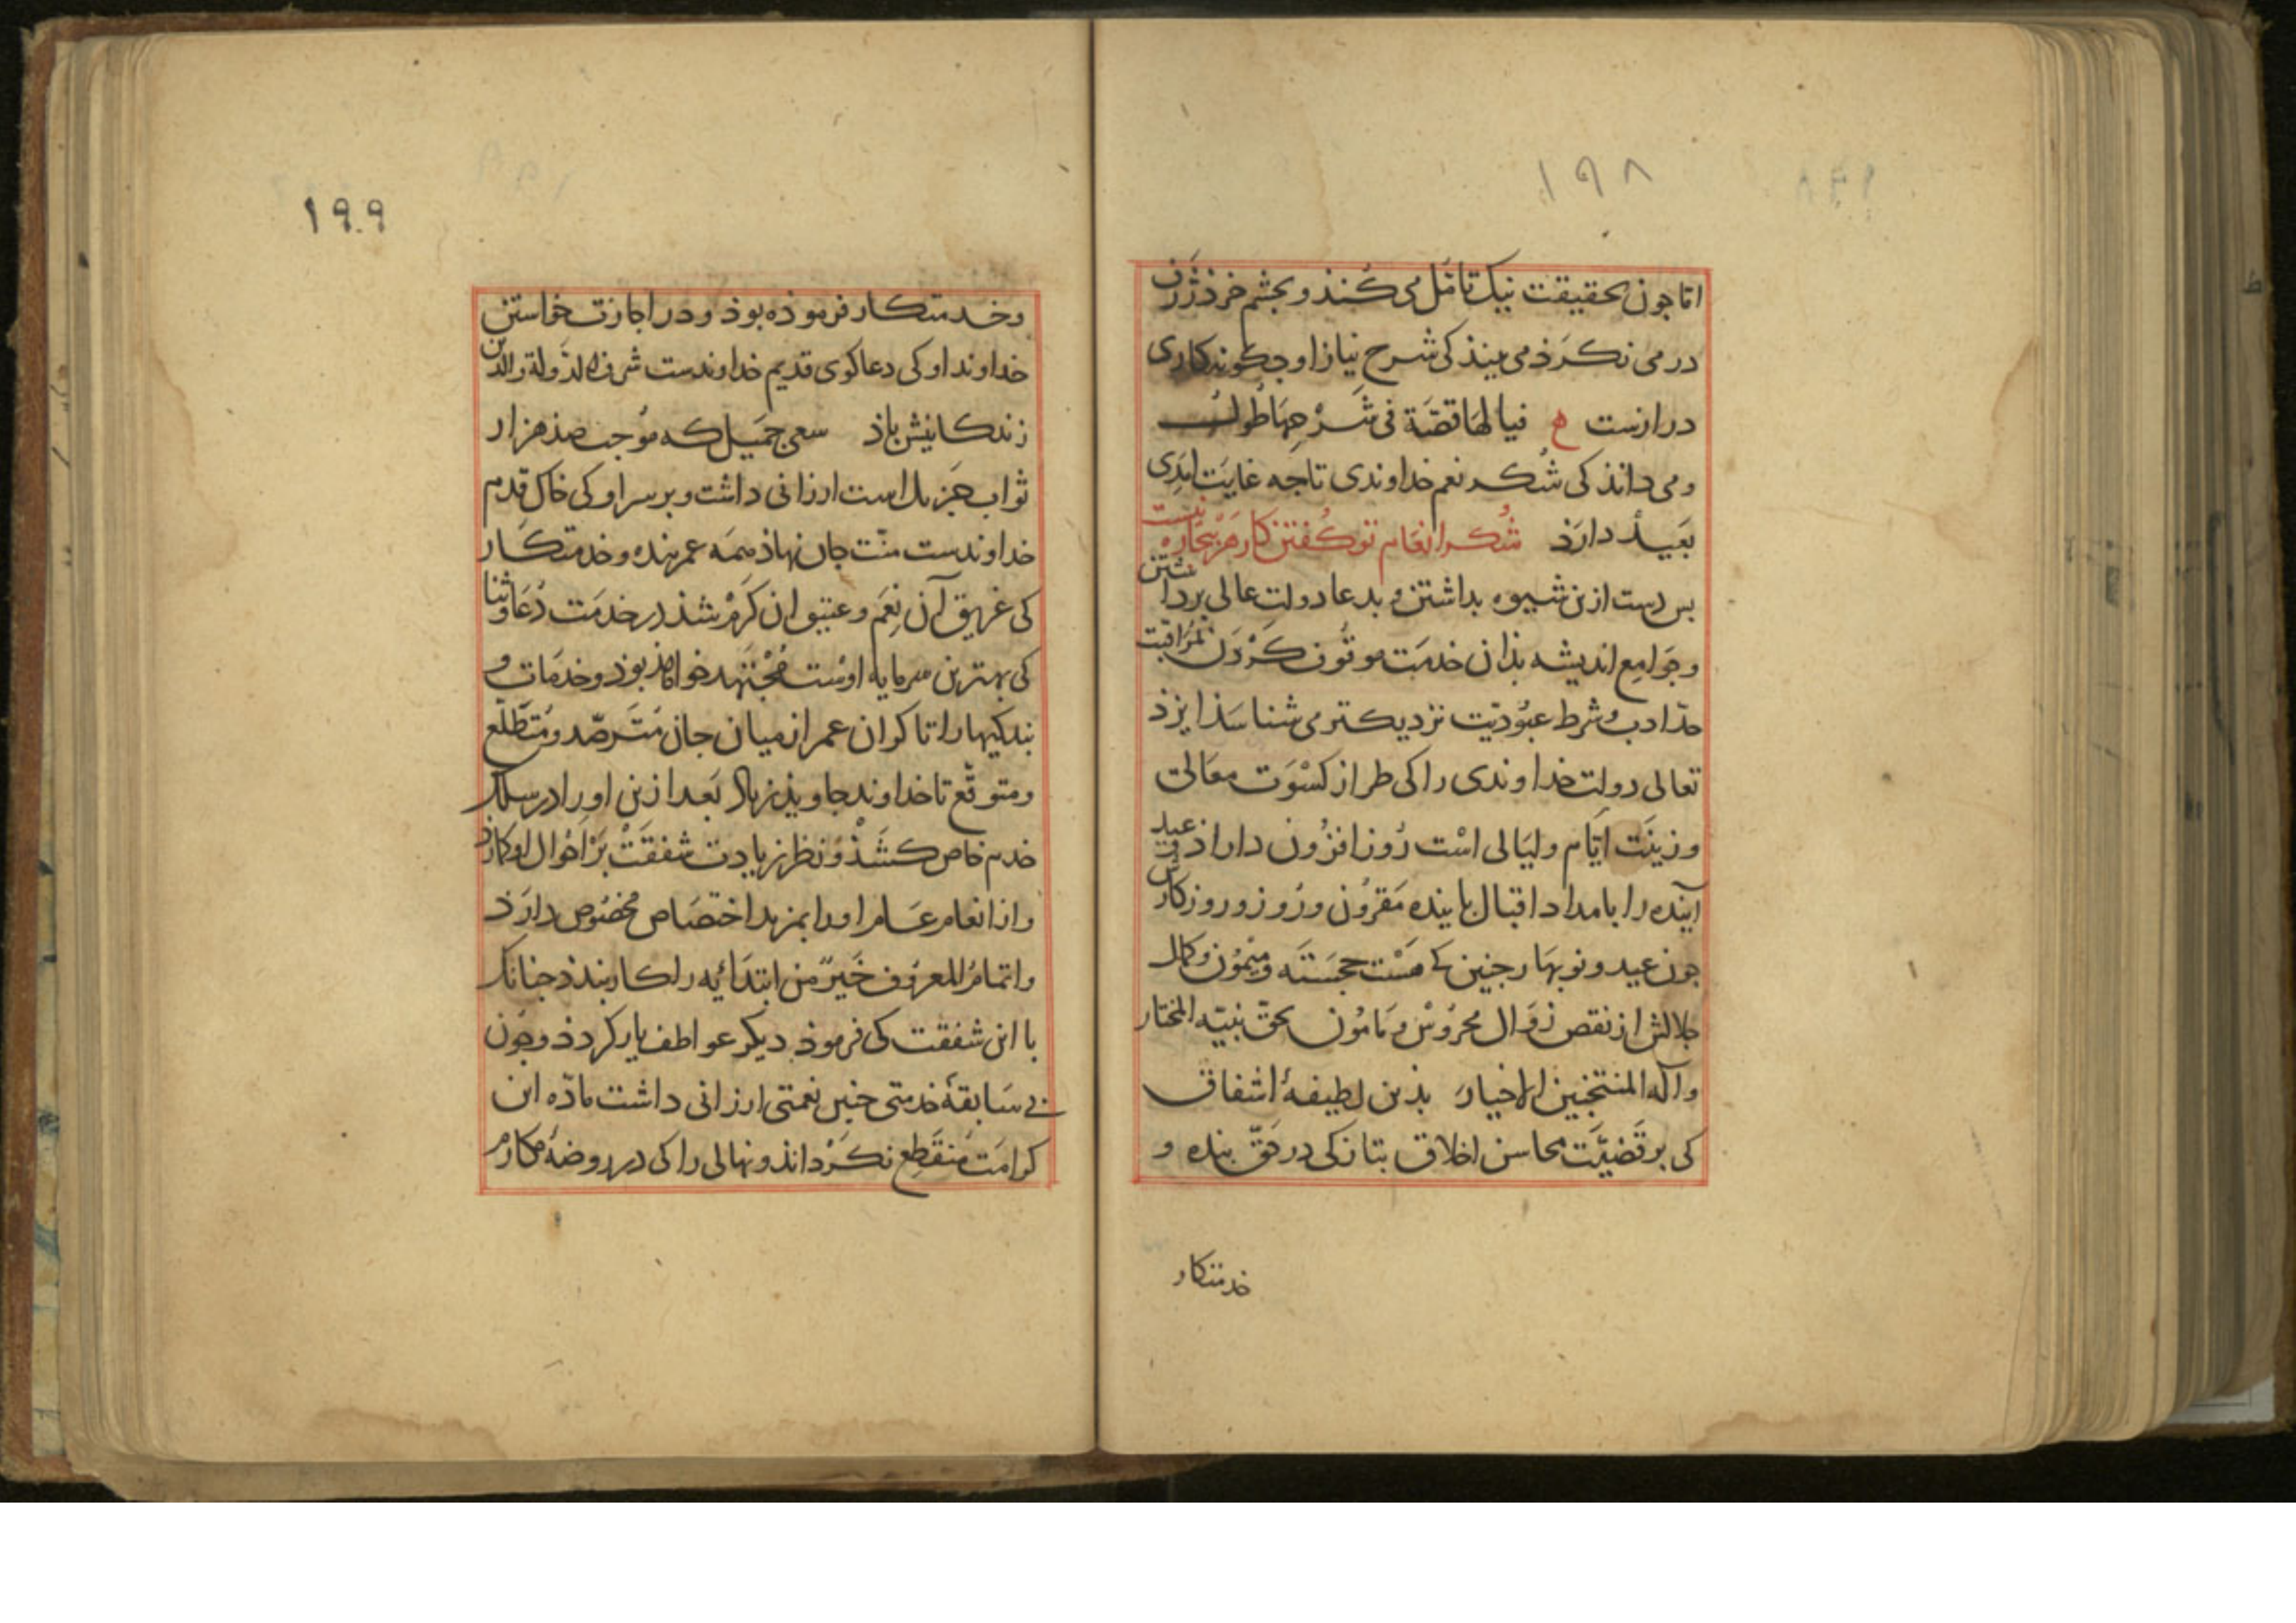 ۱۹۸
اما جون بحقیقت نیک تامّل می کنذ و بجشم خرذ ژرف
درمی نکرذ می بینذ کی شرح نیاز او جکونه کاری
درازست ع فیا لها قصّة فی شرحها طول
و می دانذ کی شکر نعم خداوندی تا جه غایت ابدی
بعید دارذ شکر انعام تو کفتن کار هر بیجاره نیست
بس دست ازین شیوه بداشتن و بدعا دولت عالی برداشتن
و جوامع اندیشه بذان خدمت موقوف کردن بمراقبت
حدّ ادب و شرط عبودیّت نزدیکتر می شناسذ ایزذ
تعالی دولت خداوندی را کی طراز کسوت معالی
و زینت ایّام و لیالی است روز افزون داراذ
آینده را بامداد اقبال باینده مقرون و روز و روزکارش
جون عید و نوبهار جنین کی هست خجسته و میمون و کمال
جلالش از نقص زوال محروس و مامون بحق نبیّه المختار
و آله المنتخبین الاخیار بذین لطیفهٔ اشفاق
کی بر قضیّت محاسن اخلاق بتازکی در حقّ بنده و
خدمتکار
۱۹۹
و خدمتکار فرموذه بوذ و در اجازت خواستن
خداوند او کی دعا کوی قدیم خداوندست شرف الدّولة والدین
زندکانیش باذ سعی جمیل که موجب صذ هزار
ثواب جزیل است ارزانی داشت و بر سر او کی خاک قدم
خداوندست منّت جان نهاذ همه عمر بنده و خدمتکار
کی غریق آن نعم و عتیق ان کرم شذ در خدمت دعا و ثنا
کی بهترین سرمایه اوست مجتهد خواهذ بوذ و خدمات و
بندکیها را تا کران عمر از میان جان مترصّد و متطلّع
و متوقّع تا خداوند جاویذ زیاذ بعد ازین او را در سلک
خدم خاص کشذ و نظر زیادت شفقت بر احوال او کمارذ
و از انعام عام او را بمزید اختصاص مخصوص دارذ
و اتمام المعروف خیر من ابتدائیه را کار بندذ جنانک
با این شفقت کی فرموذ دیکر عواطف یار کردذ و جون
بی سابقهٔ خدمتی جنین نعمتی ارزانی داشت مادّه این
کرامت منقطع نکرداند و نهالی را کی در روضهٔ مکارم